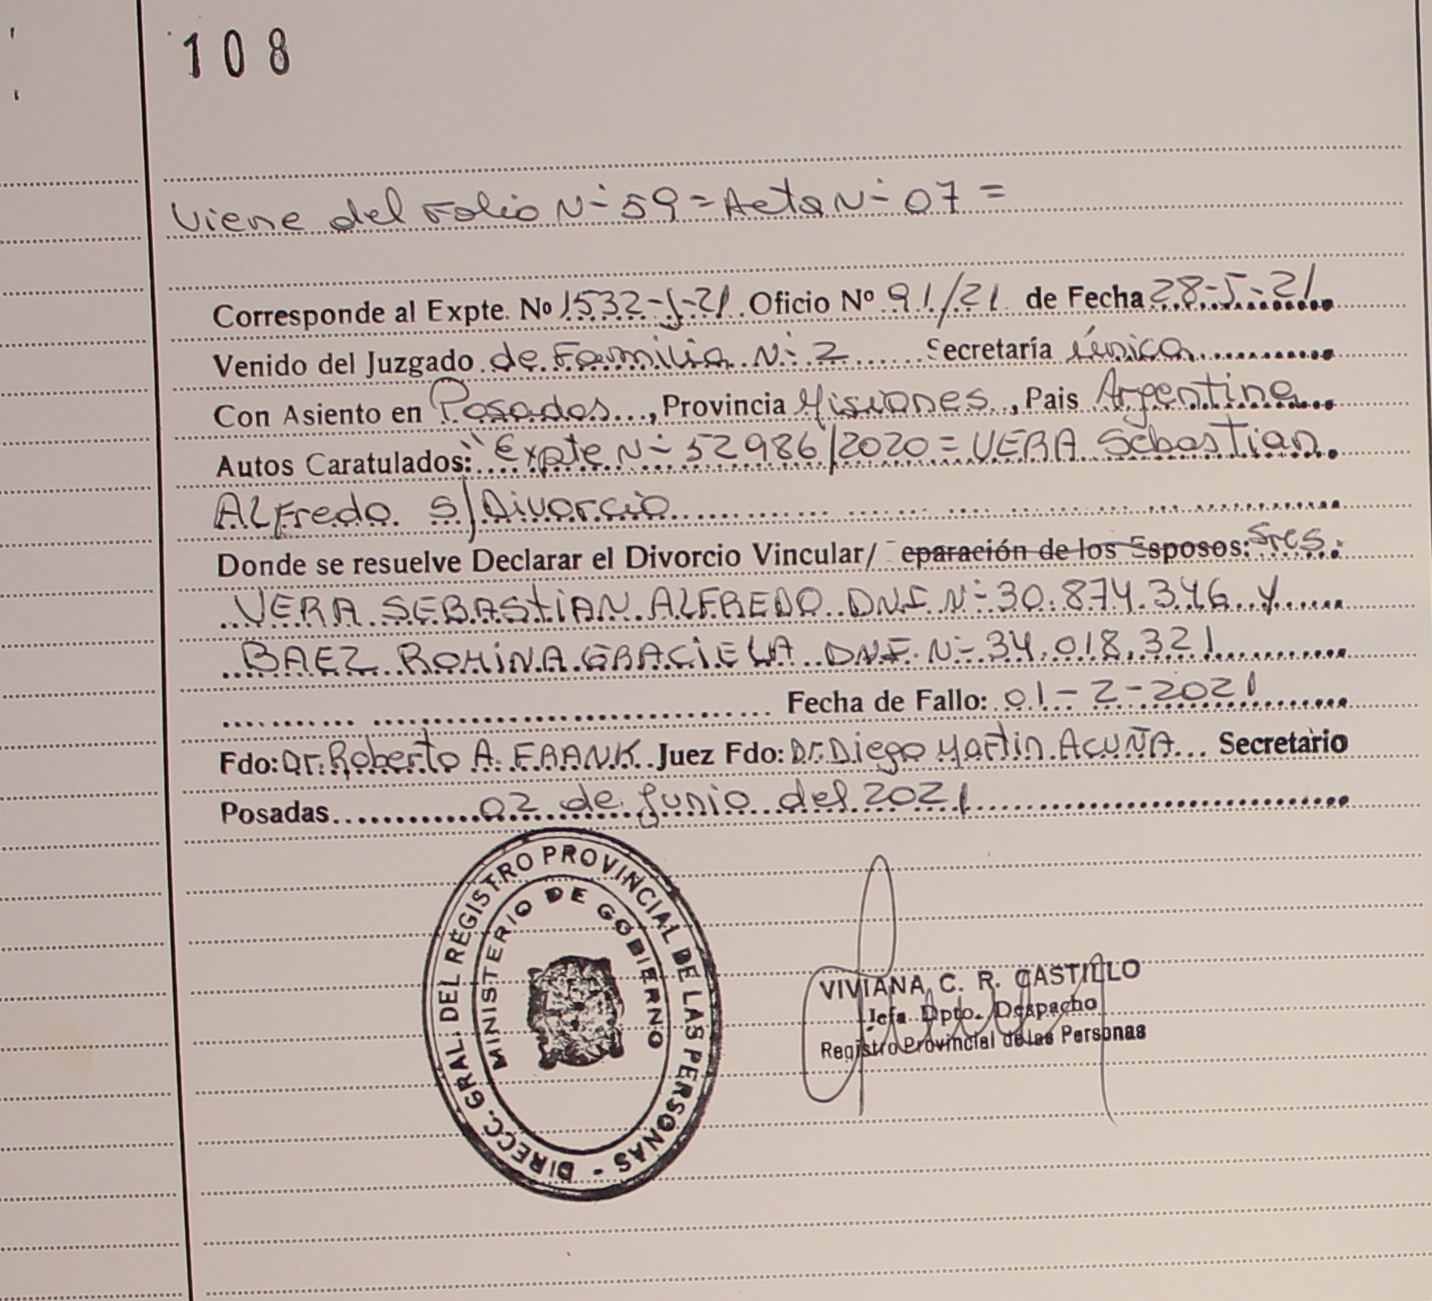 108
Viene del Folio Nº 59 = Acta Nº 07 =
Corresponde al Expte. Nº 1532-J-21 Oficio Nº 91/21 de Fecha 28-5-21
Venido del Juzgado de Familia Nº 2 Secretaría única
Con Asiento en Posadas, Provincia Misiones, Pais Argentina
Autos Caratulados: "Expte Nº 52986/2020 = VERA Sebastian
ALFredo s/Divorcio
Donde se resuelve Declarar el Divorcio Vincular/ eparación de los Esposos: Sres.
VERA SEBASTIAN ALFREDO DNI Nº 30.874.346 Y
BAEZ ROMINA GRACIELA DNI Nº 34.018.321
Fecha de Fallo: 01-2-2021
Fdo: Dr. Roberto A. FRANK Juez Fdo: Dr. Diego Martin ACUÑA Secretario
Posadas 02 de Junio del 2021
DIRECC. GRAL. DEL REGISTRO PROVINCIAL DE LAS PERSONAS -
MINISTERIO DE GOBIERNO
VIVIANA C. R. CASTILLO
Jefa Dpto. Despacho
Registro Provincial de las Personas